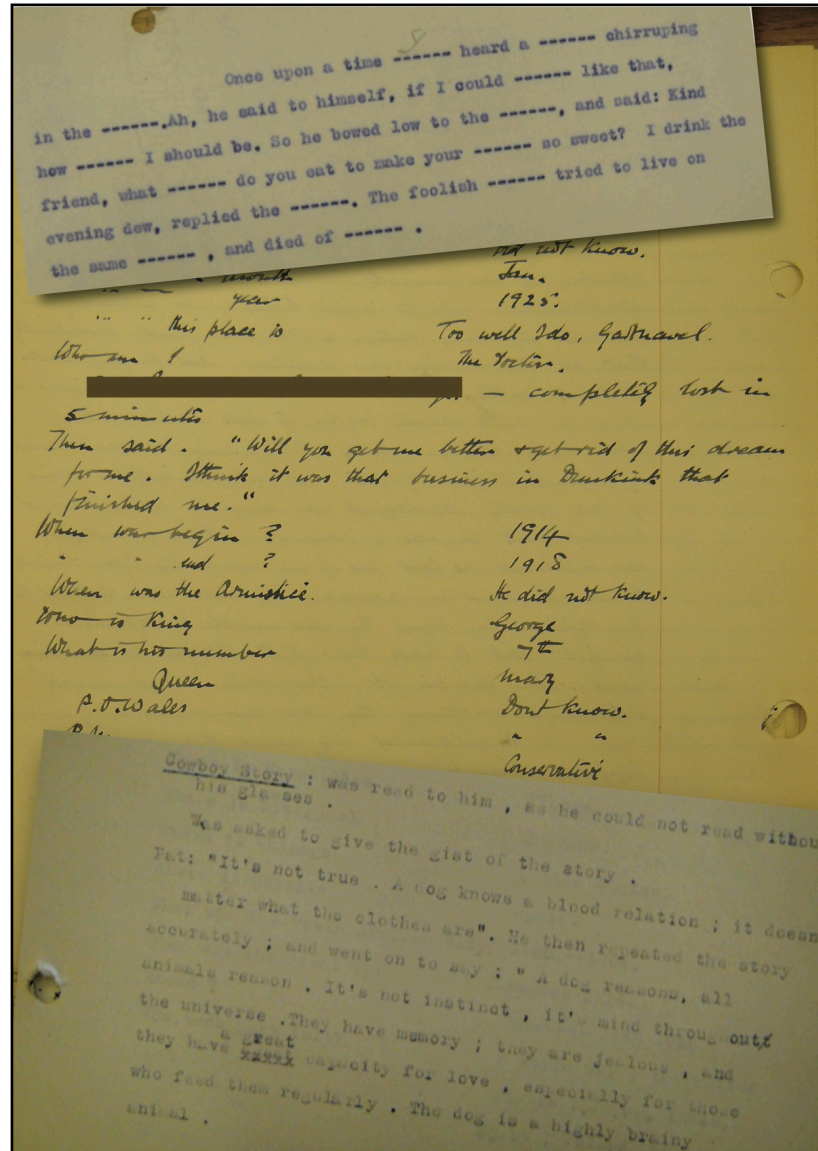 Once upon a time ------ heard a ------ chirruping
in the ------.Ah, he said to himself, if I could ------ like that,
how ------ I should be. So he bowed low to the ------, and said: Kind
friend, what ------ do you eat to make your ------ so sweet? I drink the
evening dew, replied the ------. The foolish ------ tried to live on
the same ------ , and died of ------ .
did not know.
" " month Jan.
year 1925.
" " this place is Too well I do, Gartnavel.
Who am I The Doctor.
— completely lost in
5 minutes
Then said. "Will you get me better & get rid of this dream
for me. I think it was that business in that
finished me."
When war begin ? 1914
" " end ? 1918
When was the Armistice. He did not know.
Who is King George
What is his number 7th
Queen Mary
P.O.Wales Dont know.
" "
Conservative
Cowboy Story : was read to him , as he could not read withou
his glasses .
Was asked to give the gist of the story .
Pat: "It's not true . A dog knows a blood relation ; it doesn
matter what the clothes are". He then repeated the story
accurately ; and went on to say : " A dog reasons, all
animals reason . It's not instinct , it's mind throughout
the universe .They have memory ; they are jealous , and
a great
they have xxxxx capacity for love , especially for those
who feed them regularly . The dog is a highly brainy
animal .